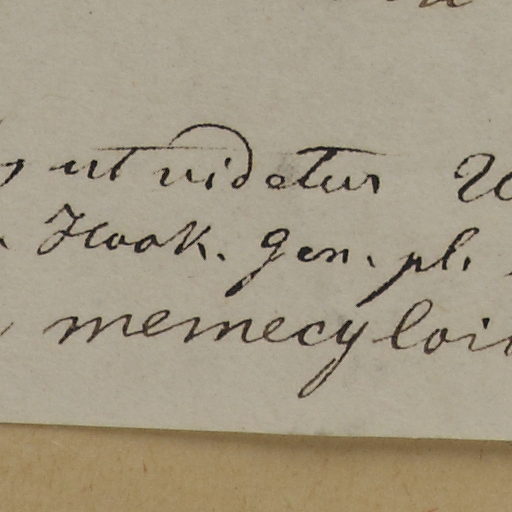 ut videtur
Hook. gen. pl.
memecyloi